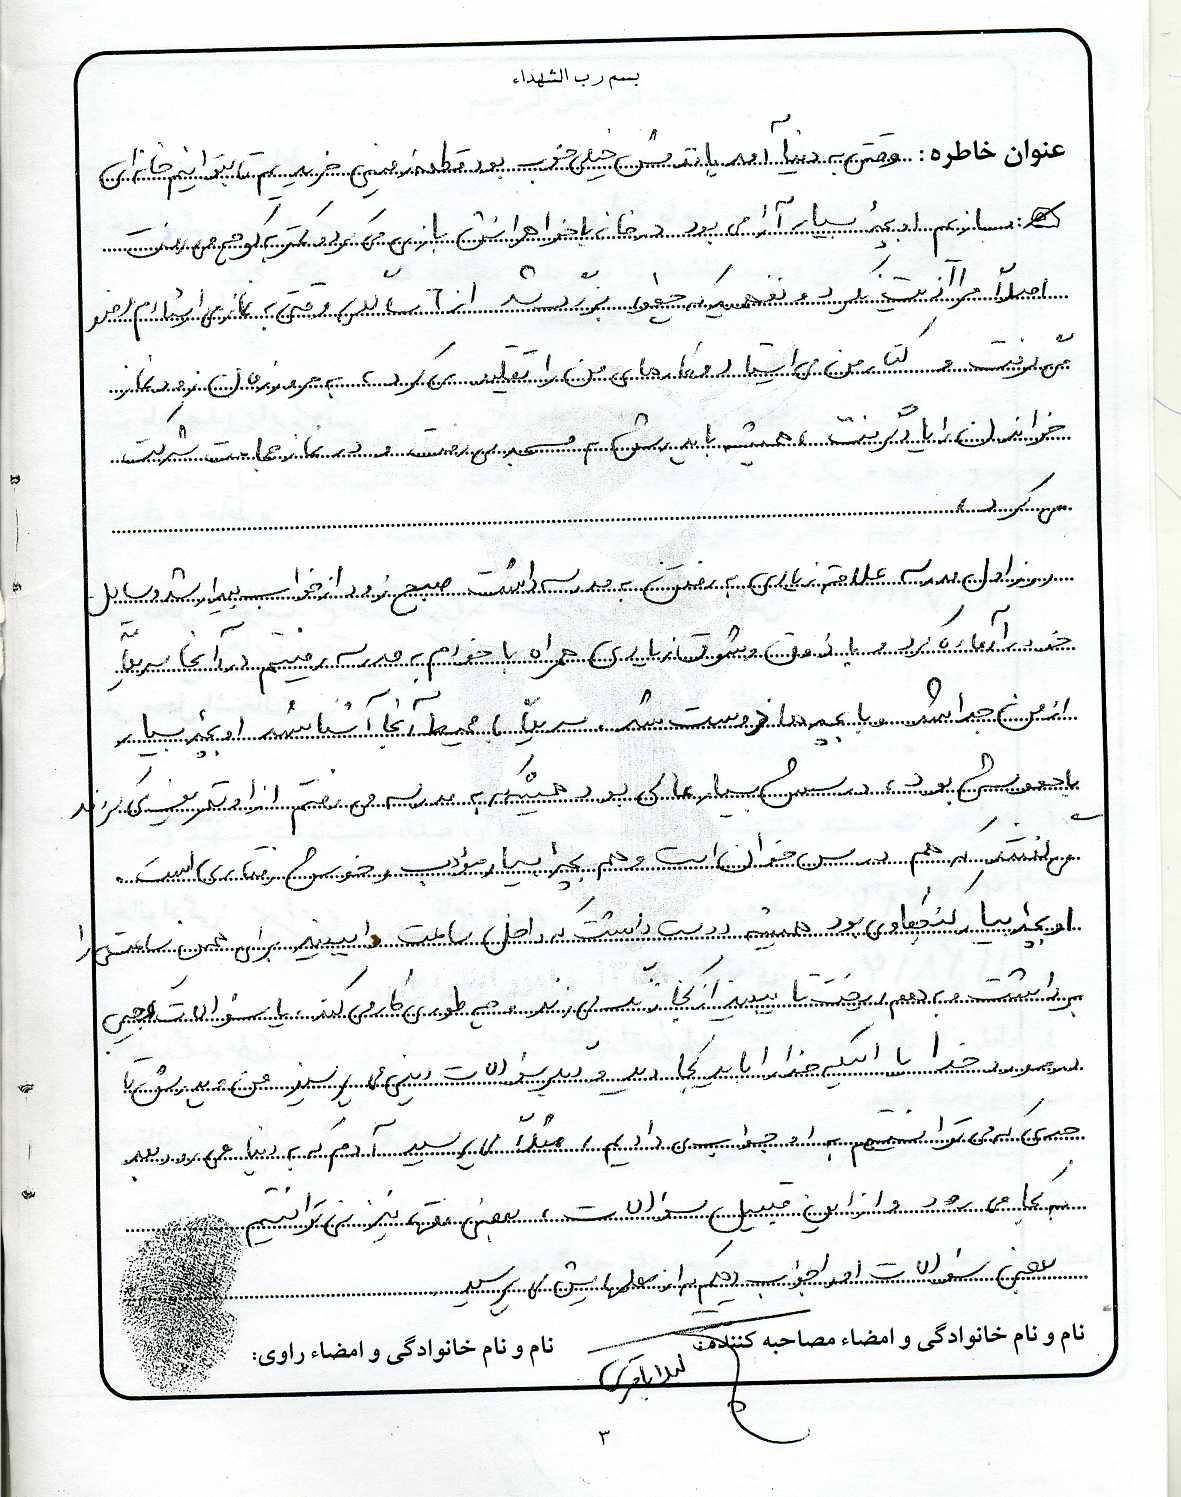 بسم رب الشهداء
عنوان خاطره: وقتی به دنیا آمد پا قدمش خیلی خوب بود قطعه زمینی خریدیم تا بتوانیم خانه‌ای
بسازیم او بچهٔ بسیار آرامی بود در خانه با خواهرانش بازی می کرد و کمتر به کوچه می رفت
اصلاً مرا اذیت نکرد و نفهمیدم که چطور بزرگ شد از ۶ سالگی وقتی به نماز می ایستادم وضو
می گرفت و کنار من می ایستاد و کارهای من را تقلید می کرد، به مرور زمان زود نماز
خواندن را یاد گرفت، همیشه با پدرش به مسجد می رفت و در نماز جماعت شرکت
می کرد،
روز اول مدرسه علاقه زیادی به رفتن به مدرسه داشت صبح زود از خواب بیدار شد وسایل
خود را آماده کرد و با ذوق و شوق زیادی همراه با خودم به مدرسه رفتیم در آنجا سریعاً
از من جدا شد و با بچه ها دوست شد، سریعاً با محیط آنجا آشنا شد او بچهٔ بسیار
باهوشی بود، درسش بسیار عالی بود همیشه که به مدرسه می رفتم از او تعریف می کردند
می گفتند که هم درس خوان است و هم بچهٔ بسیار مؤدب و خوش رفتاری است.
او بچهٔ بسیار کنجکاوی بود همیشه دوست داشت که داخل ساعت را ببیند برای همین ساعتی را
برداشت و به هم ریخت تا ببیند از کجا زنگ می زند و چه طوری کار می کند، یا سؤالات عجیبی
در مورد خدا یا اینکه خدا را باید کجا دید و دیگر سؤالات دینی می پرسید من و پدرش تا
حدی که می توانستیم به او جواب می دادیم، مثلاً می پرسید آدم که به دنیا می رود بعد
به کجا می رود و از این قبیل سؤالات، بعضی موقع نیز نمی توانستیم
بعضی سؤالات او را جواب دهیم از معلمهایش می پرسید
نام و نام خانوادگی و امضاء مصاحبه کننده:
نام و نام خانوادگی و امضاء راوی:
۳